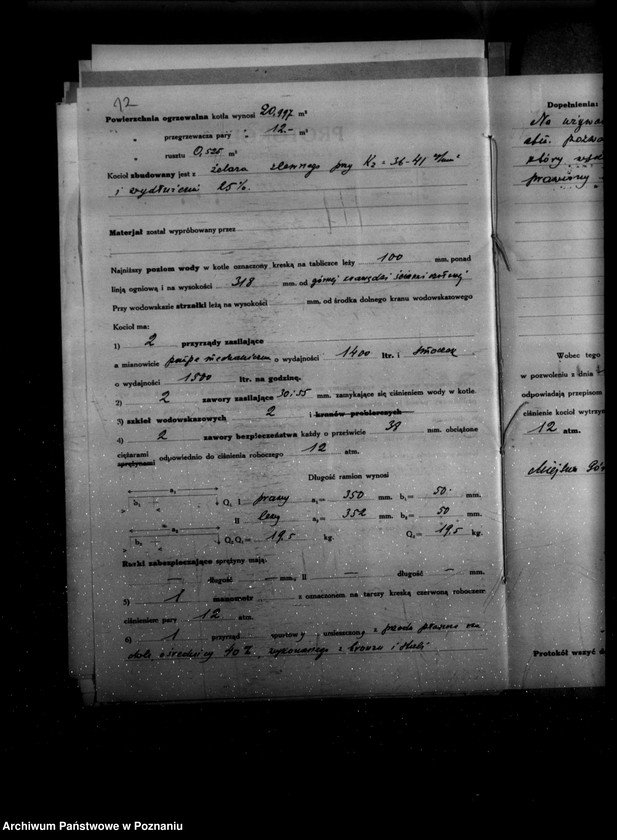 12
Powierzchnia ogrzewalna kotła wynosi 20,997 m²
" przegrzewacza pary " 12.- m²
" rusztu 0,525 m²
Kocioł zbudowany jest z żelaza zlewnego przy Kz = 36-41
i wydłużeniu 25%.
Materjał został wypróbowany przez
Najniższy poziom wody w kotle oznaczony kreską na tabliczce leży 100 mm. ponad
linją ogniową i na wysokości 318 mm. od górnej krawędzi ściany
Przy wodowskazie strzałki leżą na wysokości mm. od środka dolnego kranu wodowskazowego
Kocioł ma:
1) 2 przyrządy zasilające
a mianowicie o wydajności 1400 ltr. i
o wydajności 1500 ltr. na godzinę.
2) 2 zawory zasilające 30 i 35 mm. zamykające się ciśnieniem wody w kotle.
3) szkieł wodowskazowych 2 i kranów probierczych
4) 2 zawory bezpieczeństwa każdy o prześwicie 38 mm. obciążone
ciężarami
sprężynami odpowiednio do ciśnienia roboczego 12 atm.
Długość ramion wynosi
Q₁ I prawy a₁= 350 mm. b₁= 50 mm.
II lewy a₂= 352 mm. b₂= 50 mm.
Q₁= 19,5 kg. Q₂= 19,5 kg.
Rurki zabezpieczające sprężyny mają.
— długość — mm., II — długość — mm.
5) 1 manometr z oznaczoniem na tarczy kreską czerwoną roboczem
ciśnieniem pary 12 atm.
6) 1 przyrząd umieszczony z przodu
dole o średnicy 40 wykonanego z bronzu i stali
Dopełnienia:
Na
który
Wobec tego
w pozwoleniu z dnia
odpowiadają przepisom
ciśnienie kocioł wytrzym
12 atm.
Miejska Gór
Protokół ważny do
Archiwum Państwowe w Poznaniu